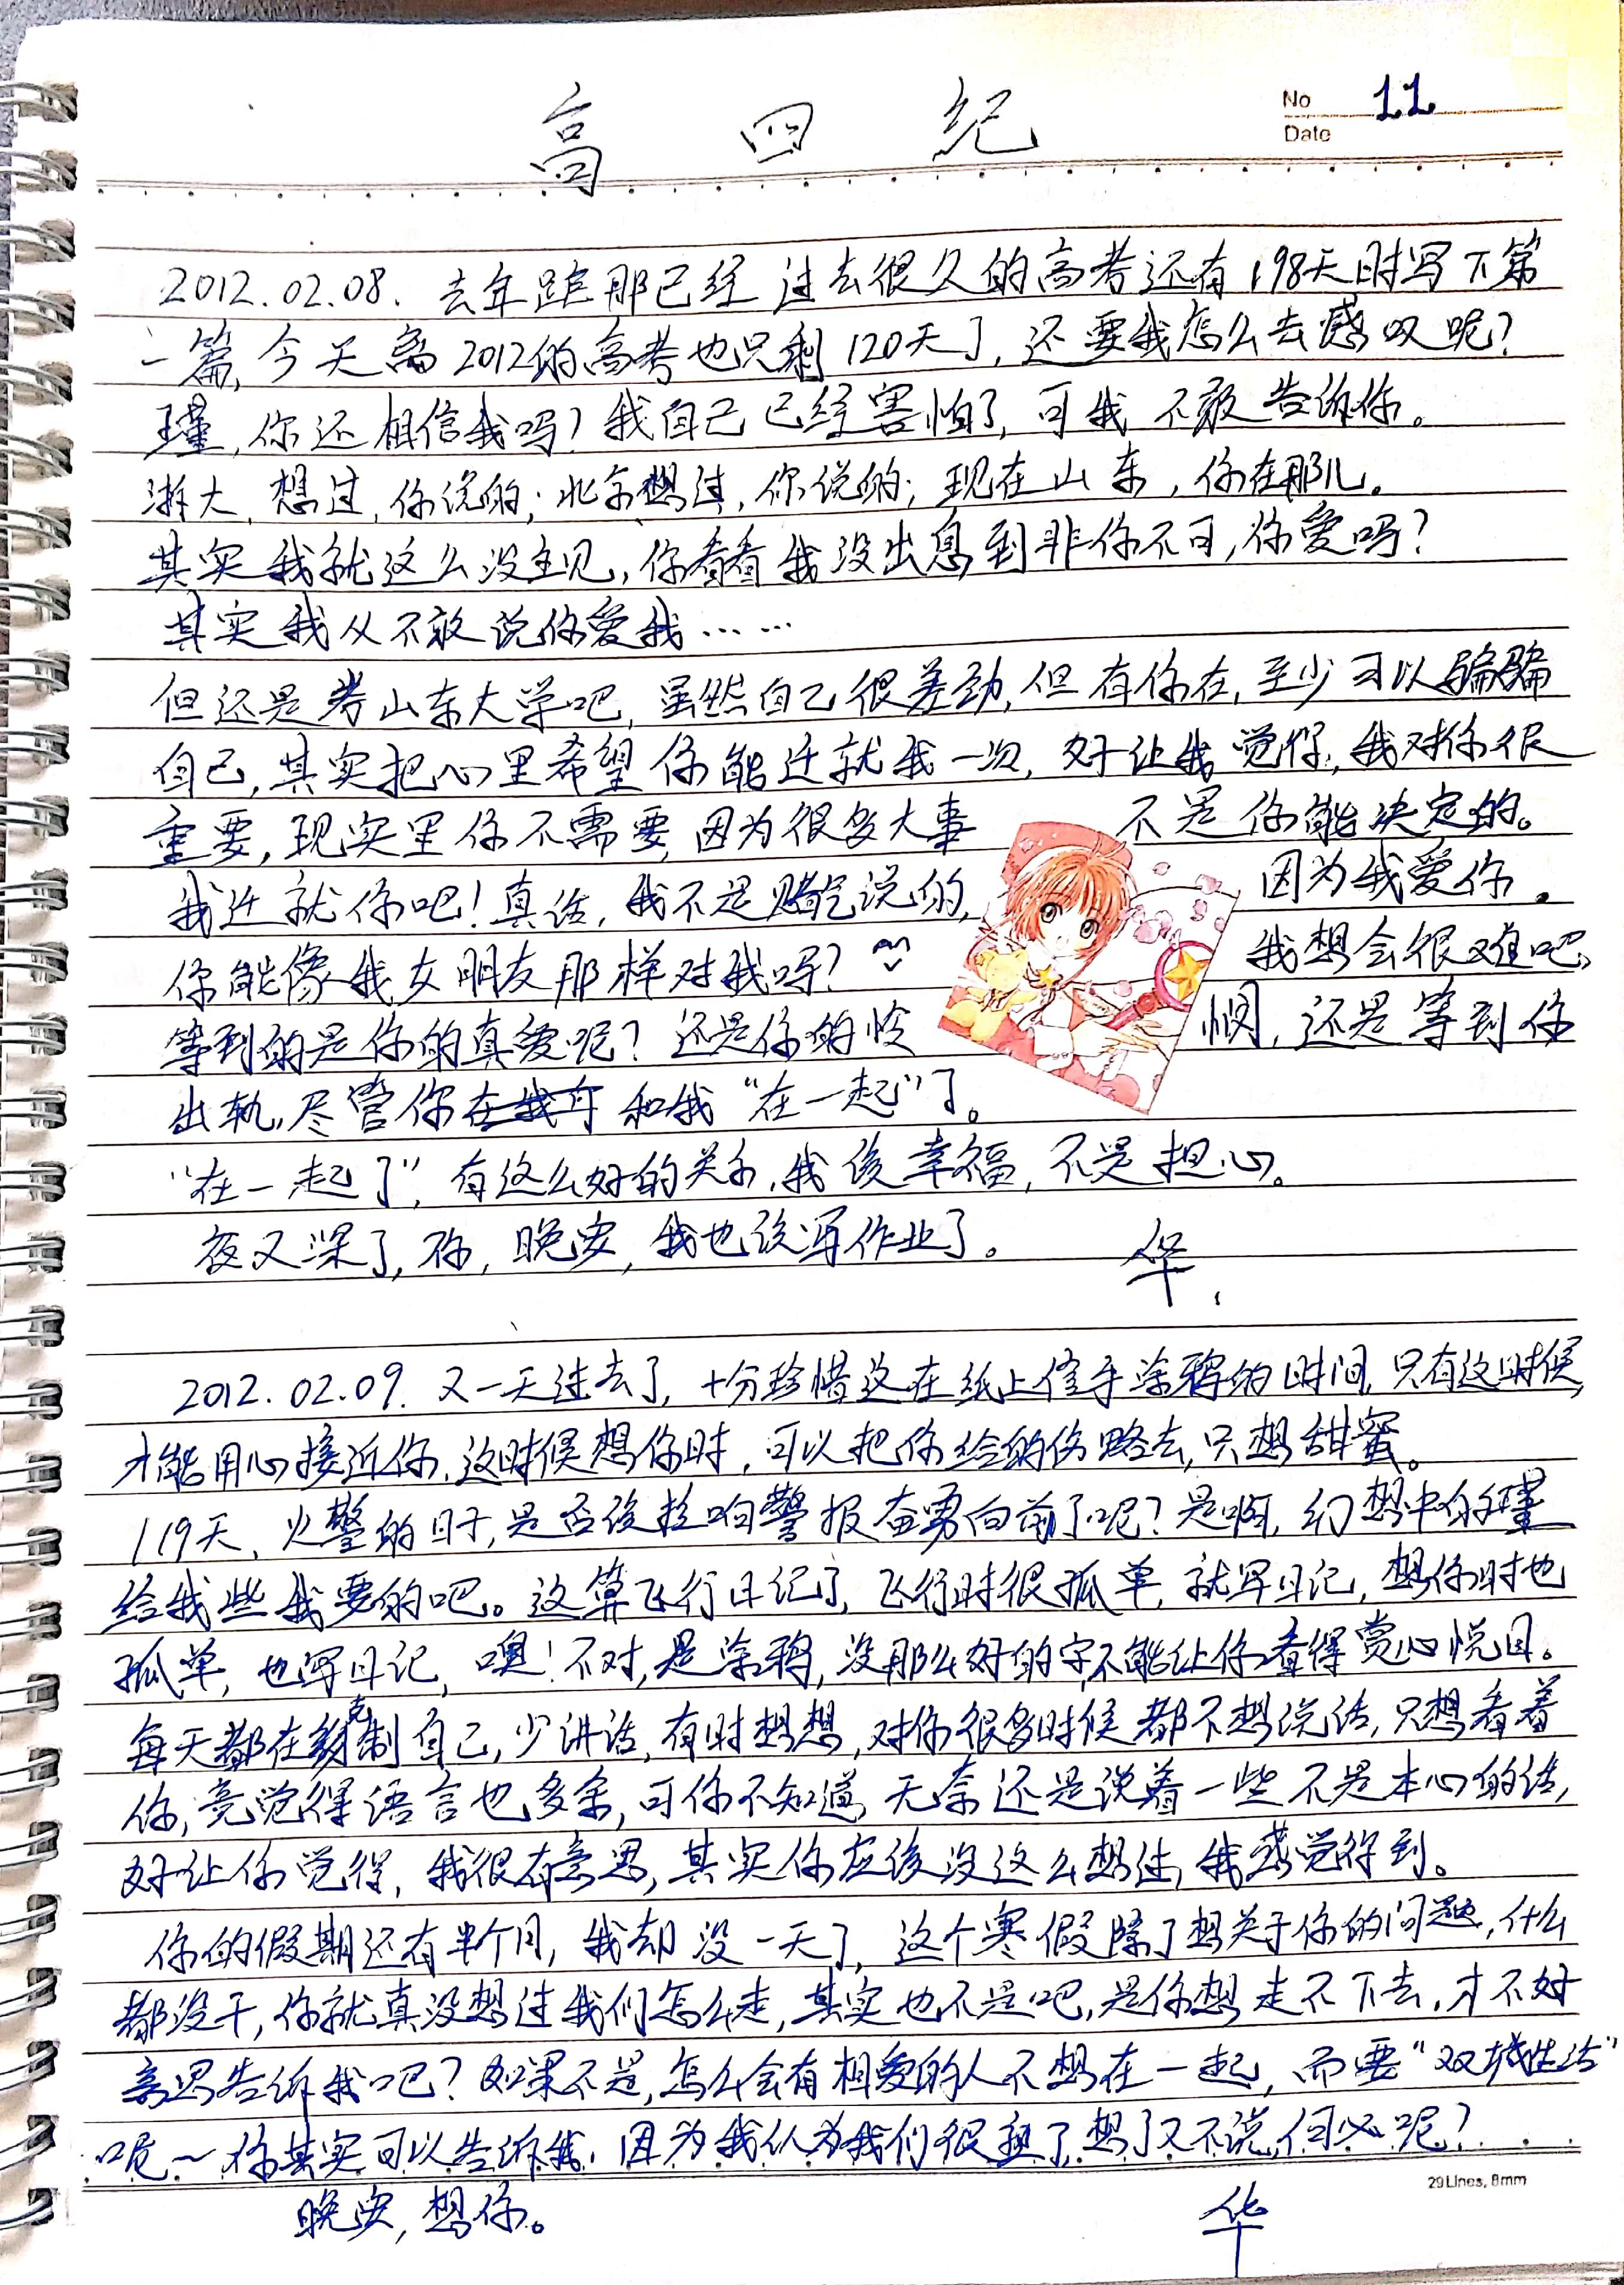 高四纪
No 11
Date
2012.02.08. 去年距那已经过去很久的高考还有198天时写下第
一篇,今天离2012的高考也只剩120天了,还要我怎么去感叹呢?
瑾,你还相信我吗?我自己已经害怕了,可我不敢告诉你。
浙大,想过,你说的;北京想过,你说的;现在山东,你在那儿。
其实我就这么没主见,你看看我没出息到非你不可,你爱吗?
其实我从不敢说你爱我……
但还是考山东大学吧,虽然自己很差劲,但有你在,至少可以骗骗
自己,其实把心里希望你能迁就我一次,好让我觉得,我对你很
重要,现实里你不需要,因为很多大事不是你能决定的。
我迁就你吧!真话,我不是赌气说的,因为我爱你。
你能像我女朋友那样对我吗?我想会很难吧,
等到的是你的真爱呢?还是你的怜悯,还是等到你
出轨,尽管你和我“在一起”了。
“在一起了”,有这么好的关系,我该幸福,不是担心。
夜又深了,你,晚安,我也该写作业了。
华.
2012.02.09. 又一天过去了,十分珍惜这在纸上信手涂鸦的时间,只有这时候,
才能用心接近你,这时候想你时,可以把你给的伤略去,只想甜蜜。
119天、火警的日子,是否该拉响警报奋勇向前了呢?是啊,幻想中的瑾
给我些我要的吧。这算飞行日记了,飞行时很孤单,就写日记,想你时也
孤单,也写日记,噢!不对,是涂鸦,没那么好的字,不能让你看得赏心悦目。
每天都在克制自己,少讲话,有时想想,对你很多时候都不想说话,只想看着
你,竟觉得语言也多余,可你不知道,无奈还是说着一些不是本心的话,
好让你觉得,我很有意思,其实你应该没这么想过,我感觉得到。
你的假期还有半个月,我却没一天了,这个寒假除了想关于你的问题,什么
都没干,你就真没想过我们怎么走,其实也不是吧,是你想走不下去,才不好
意思告诉我吧?如果不是,怎么会有相爱的人不想在一起,而要“双城生活”
呢~你其实可以告诉我,因为我认为我们很熟了,想了又不说,何必呢?
29Lines, 8mm
晚安,想你。
华